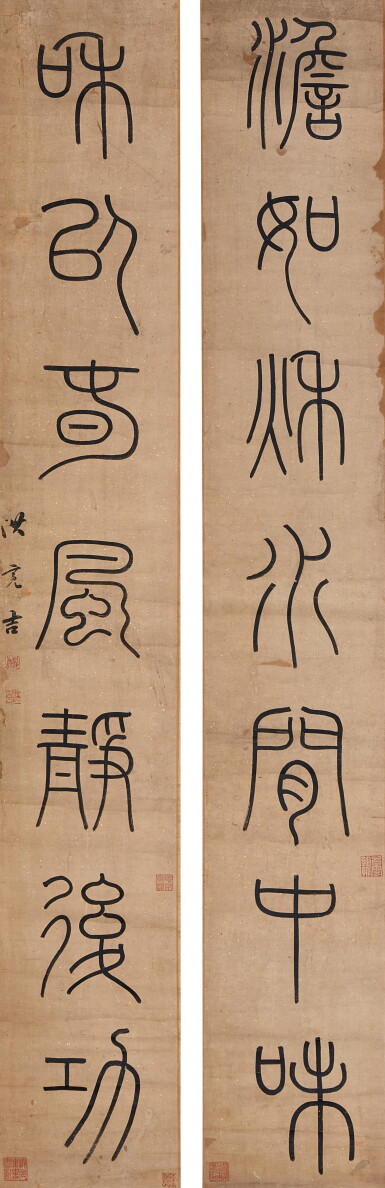 澹如秋水閒中味
和似春風靜後功
洪亮吉